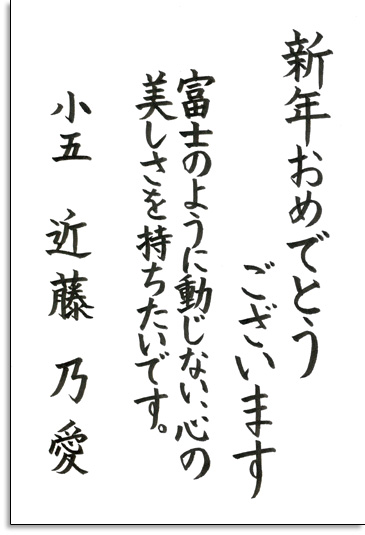 新年おめでとう
ございます
富士のように動じない、心の
美しさを持ちたいです。
小五 近藤乃愛